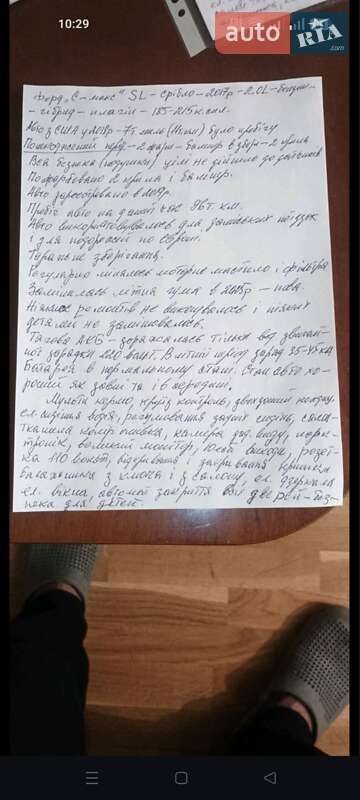 10:29
auto RIA .com
Форд "С-макс" SL - срібло - 2017р - 2.0L - бензин -
- гібрид - плагін - 185-215к.сил.
Авто з США у 2018р - 75 т.миль було пробігу
Пошкоджений перед - 2 фари - бампер в зборі - 2 крила
Вся безпека (подушки) цілі не дійшло до
Пофарбовано 2 крила і бампер.
Авто зареєстровано в 2019р.
Пробіг авто на даний час т.км.
Авто використовувалось для заміських поїздок
і для подорожей по Європі.
Гаражне зберігання.
Регулярно мінялось моторне мастило і фільтра
Замінялась літня гума в 2025р - нова.
Ніяких ремонтів не виконувалось і ніяких
деталей не замінювалось.
Тягова АКБ - заряжалась тільки від звичай-
ної зарядки 220 вольт. В літній період заряд 35-45км
Батарея в нормальному стані. Стан авто хо-
роший як зовні та і в середині.
Мульти кермо, круїз контроль, двохзонний клімат,
ел. сидіння водія, розкладування задніх сидінь, салон
тканина колір, камера зад. виду, парк-
тронік, великий монітор, USB виходи, розет-
ка 110 вольт, відкривання і закривання кришки
багажника з ключа і з салону, ел. дзеркала
ел. вікна, автомат закриття всіх дверей - без-
пека для дітей.